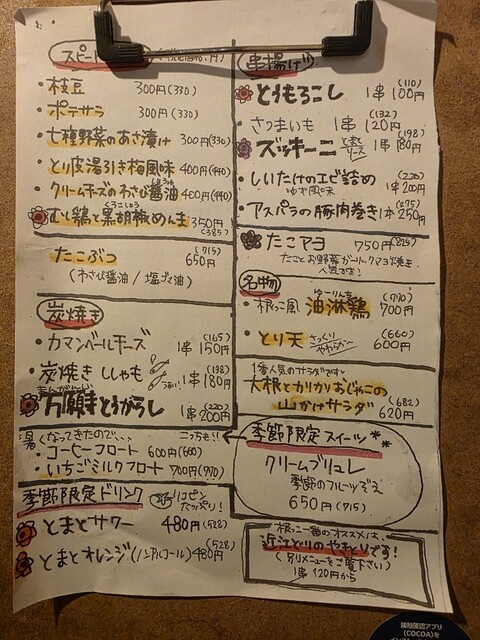 スピード
・枝豆 300円(330)
・ポテサラ 300円(330)
・七種野菜のあさ漬け 300円(330)
・とり皮湯引き梅風味 400円(440)
・クリームチーズのわさび醤油 400円(440)
むし鶏と黒胡椒めんま 350円
(385)
たこぶつ 650円
(715)
(わさび醤油 / 塩ゴマ油)
炭焼き
・カマンベールチーズ 1串 150円
(165)
・炭焼きししゃも 1串 180円
(198)
まんがんじ
万願寺とうがらし 1串 200円
(220)
暑くなってきたので、、、 こっちも!!
・コーヒーフロート 600円(660)
・いちごミルクフロート 700円(770)
季節限定ドリンク リコピンたっぷり!
とまとサワー 480円(528)
とまとオレンジ(ノンアルコール) 480円
(528)
串揚げ
とうもろこし 1串 100円
(110)
さつまいも 1串 120円
(132)
ズッキーニ とまとソース 1串 180円
(198)
・しいたけのエビ詰め 1串 200円
(220)
ゆず風味
・アスパラの豚肉巻き 1本 250円
(275)
たこアヨ 750円(825)
たことお野菜がーリックマヨ焼き
人気です!
名物
・根っこ風 油淋鶏 700円
ゆーりんちー (770)
・とり天 さっくりやわらか〜 600円
(660)
1番人気のサラダです♡
大根とカリカリおじゃこの
山かけサラダ 620円
(682)
季節限定スイーツ
クリームブリュレ
季節のフルーツぞえ
650円(715)
根っこ一番のオススメは、
近江とりのやきとりです!
(別リメニューをご覧下さい)
1串 120円から
接触確認アプリ
(COCOA)を